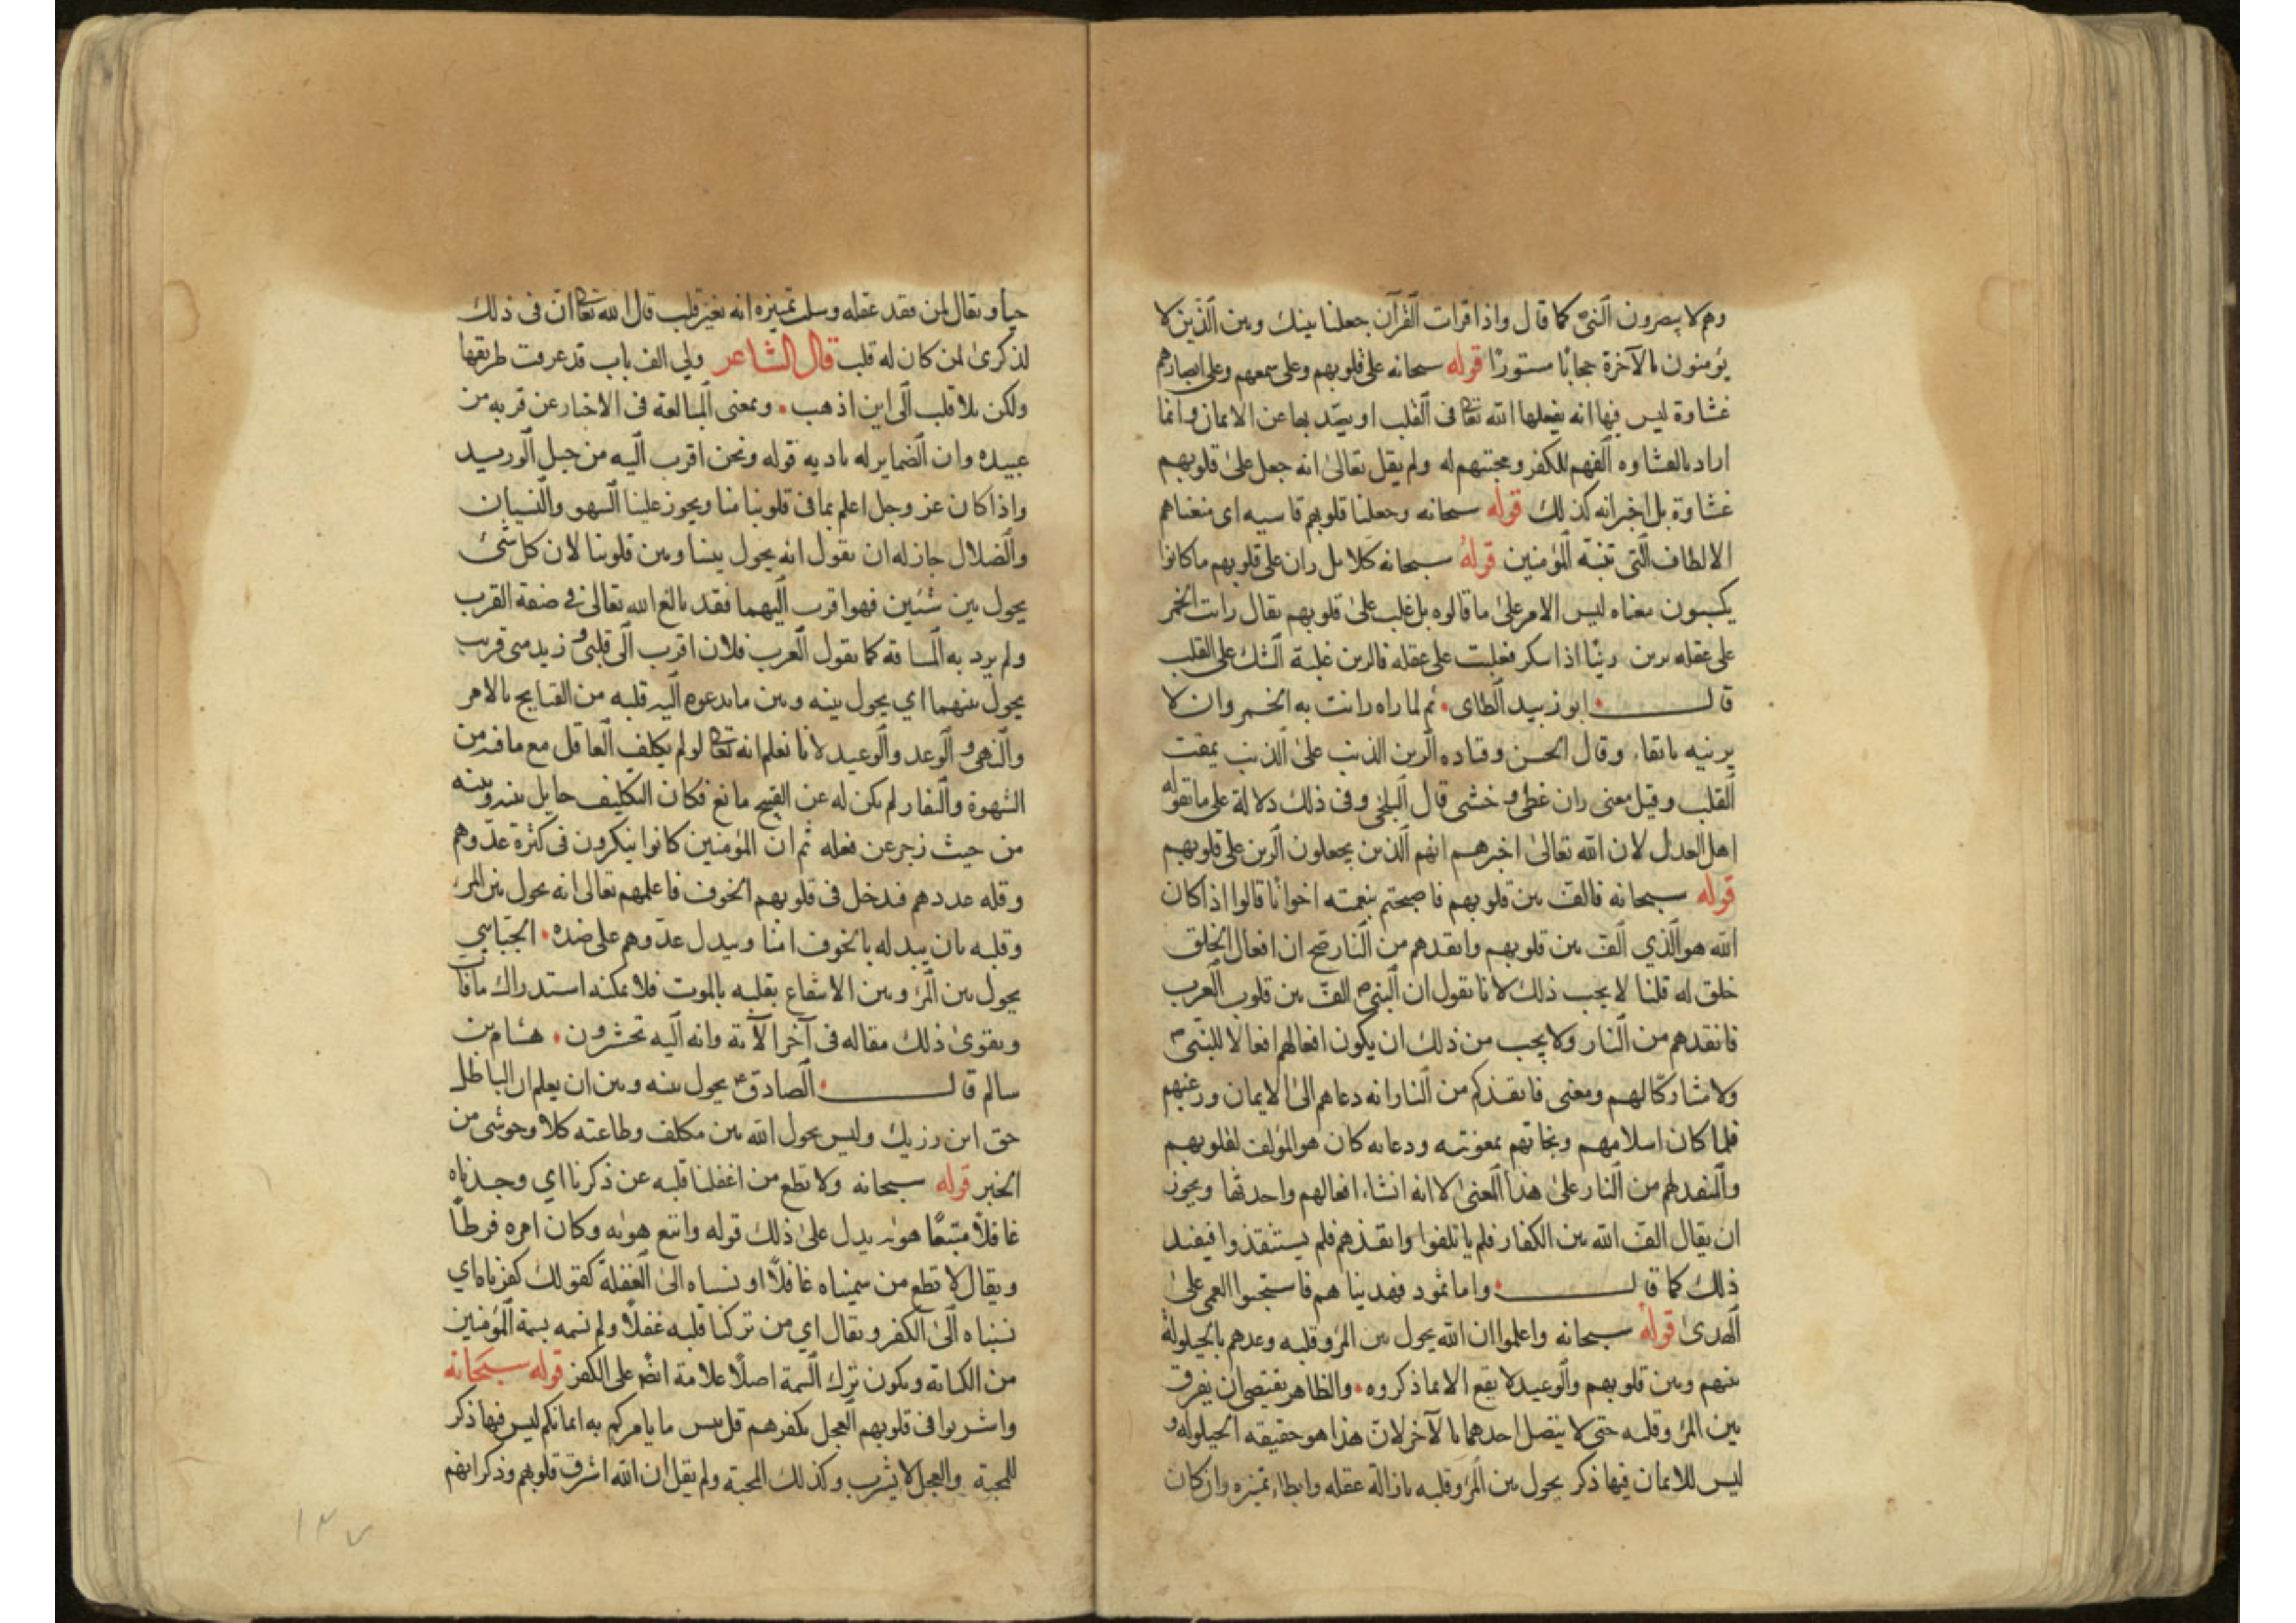 وهم لا يبصرون النبي كما قال واذا قرات القرآن جعلنا بينك وبين الذين لا
يؤمنون بالآخرة حجابًا مستورًا قوله سبحانه على قلوبهم وعلى سمعهم وعلى ابصارهم
غشاوة ليس فيها انه يفعلها الله تعا فى القلب او يصد بها عن الايمان وانما
اراد بالغشاوه الفهم للكفر ومحبتهم له ولم يقل تعالى انه جعل على قلوبهم
غشاوة بل اخبر انه كذلك قوله سبحانه وجعلنا قلوبهم قاسيه اى منعناهم
الالطاف التى تنبه المؤمنين قوله سبحانه كلا بل ران على قلوبهم ما كانوا
يكسبون معناه ليس الامر على ما قالوه بل غلب على قلوبهم يقال رانت الخمر
على عقله ترين رينًا اذا سكر فغلبت على عقله فالرين غلبة الشك على القلب
قال ابو زبيد الطاى ثم لما راه رانت به الخمر وان لا
يرنيه باتقاء وقال الحسن وقتاده الرين الذنب على الذنب يمقت
القلب وقيل معنى ران غطى و خشى قال البلخى وفى ذلك دلالة على ما تقوله
اهل العدل لان الله تعالى اخبرهم انهم الذين يجعلون الرين على قلوبهم
قوله سبحانه فالف بين قلوبهم فاصبحتم بنعمته اخوانًا قالوا اذا كان
الله هو الذي الف بين قلوبهم وانقذهم من النار صح ان افعال الخلق
خلق له قلنا لا يجب ذلك لانا نقول ان النبى ص الف بين قلوب العرب
فانقذهم من النار ولا يجب من ذلك ان يكون افعالهم افعالا للنبى ص
ولا مشاركا لهم ومعنى فانقذكم من النار انه دعاهم الى الايمان ورغبهم
فلما كان اسلامهم ونجاتهم بمعونته ودعائه كان هو المؤلف لقلوبهم
والمنقذ لهم من النار على هذا المعنى لا انه انشاء افعالهم واحدثها ويجوز
ان يقال الف الله بين الكفار فلم ياتلفوا وانقذهم فلم يستنقذوا فيفيد
ذلك كما قال واما ثمود فهديناهم فاستحبوا العمى على
الهدى قوله سبحانه واعلموا ان الله يحول بين المرء وقلبه وعدهم بالحيلولة
بينهم وبين قلوبهم والوعيد لا يقع الا بما ذكروه والظاهر يقتضى ان يفرق
بين المرء وقلبه حتى لا يتصل احدهما بالآخر لان هذا هو حقيقه الحيلوله و
ليس للايمان فيها ذكر يحول بين المرء وقلبه بازالة عقله وابطاء تميزه وان كان
حيا ويقال لمن فقد عقله وسلب تميزه انه بغير قلب قال الله تعا ان فى ذلك
لذكرى لمن كان له قلب قال الشاعر ولي الف باب قد عرفت طريقها
ولكن بلا قلب الى اين اذهب ومعنى المبالغة فى الاخبار عن قربه من
عبيده وان الضماير له باديه قوله ونحن اقرب اليه من حبل الوريد
واذا كان عز وجل اعلم بما فى قلوبنا منا ويجوز علينا السهو والنسيان
والضلال جاز له ان يقول انه يحول بيننا وبين قلوبنا لان كل شئ
يحول بين شئين فهو اقرب اليهما فقد بالغ الله تعالى فى صفة القرب
ولم يرد به المسافة كما تقول العرب فلان اقرب الى قلبى و زيد منى قريب
يحول بينهما اي يحول بينه وبين ما يدعوه اليه قلبه من القبايح بالامر
والنهى و الوعد والوعيد لانا نعلم انه تعا لو لم يكلف العاقل مع ما فيه من
الشهوة والنفار لم يكن له عن القبيح مانع فكان التكليف حايل بينه وبينه
من حيث زجر عن فعله ثم ان المؤمنين كانوا يتفكرون فى كثرة عدوهم
وقله عددهم فدخل فى قلوبهم الخوف فاعلمهم تعالى انه يحول بين المرء
وقلبه بان يبدله بالخوف امنا ويبدل عدوهم على ضده الجبّاسي
يحول بين المرء وبين الانتفاع بقلبه بالموت فلا يمكنه استدراك ما فات
ويقوى ذلك مقاله فى آخر الآية وانه اليه تحشرون هشام بن
سالم قال الصادق ع يحول بينه وبين ان يعلم ان الباطل
حق ابن رزيك وليس يحول الله بين مكلف وطاعته كلا وحوشى من
الخبر قوله سبحانه ولا تطع من اغفلنا قلبه عن ذكرنا اي وجدناه
غافلًا متبعًا هوئه يدل على ذلك قوله واتبع هوئه وكان امره فرطًا
ويقال لا تطع من سميناه غافلًا او نسبناه الى الغفلة كقولك كفرناه اي
نسبناه الى الكفر ويقال اي من تركنا قلبه غفلًا ولم نسمه بسمة المؤمنين
من الكتابة ويكون ترك السمة اصلًا علامة ايضً على الكفر قوله سبحانه
واشربوا فى قلوبهم العجل بكفرهم قل بئس ما يامركم به ايمانكم ليس فيها ذكر
للمحبة والعجل لا يشرب وكذلك المحبة ولم يقل ان الله اشرق قلوبهم وذكر انهم
١٢٧